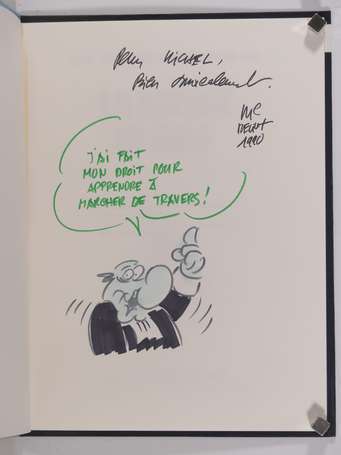 Pour MICHEL,
Bien amicalement.
1990
J'AI FAIT
MON DROIT POUR
APPRENDRE À
MARCHER DE TRAVERS !